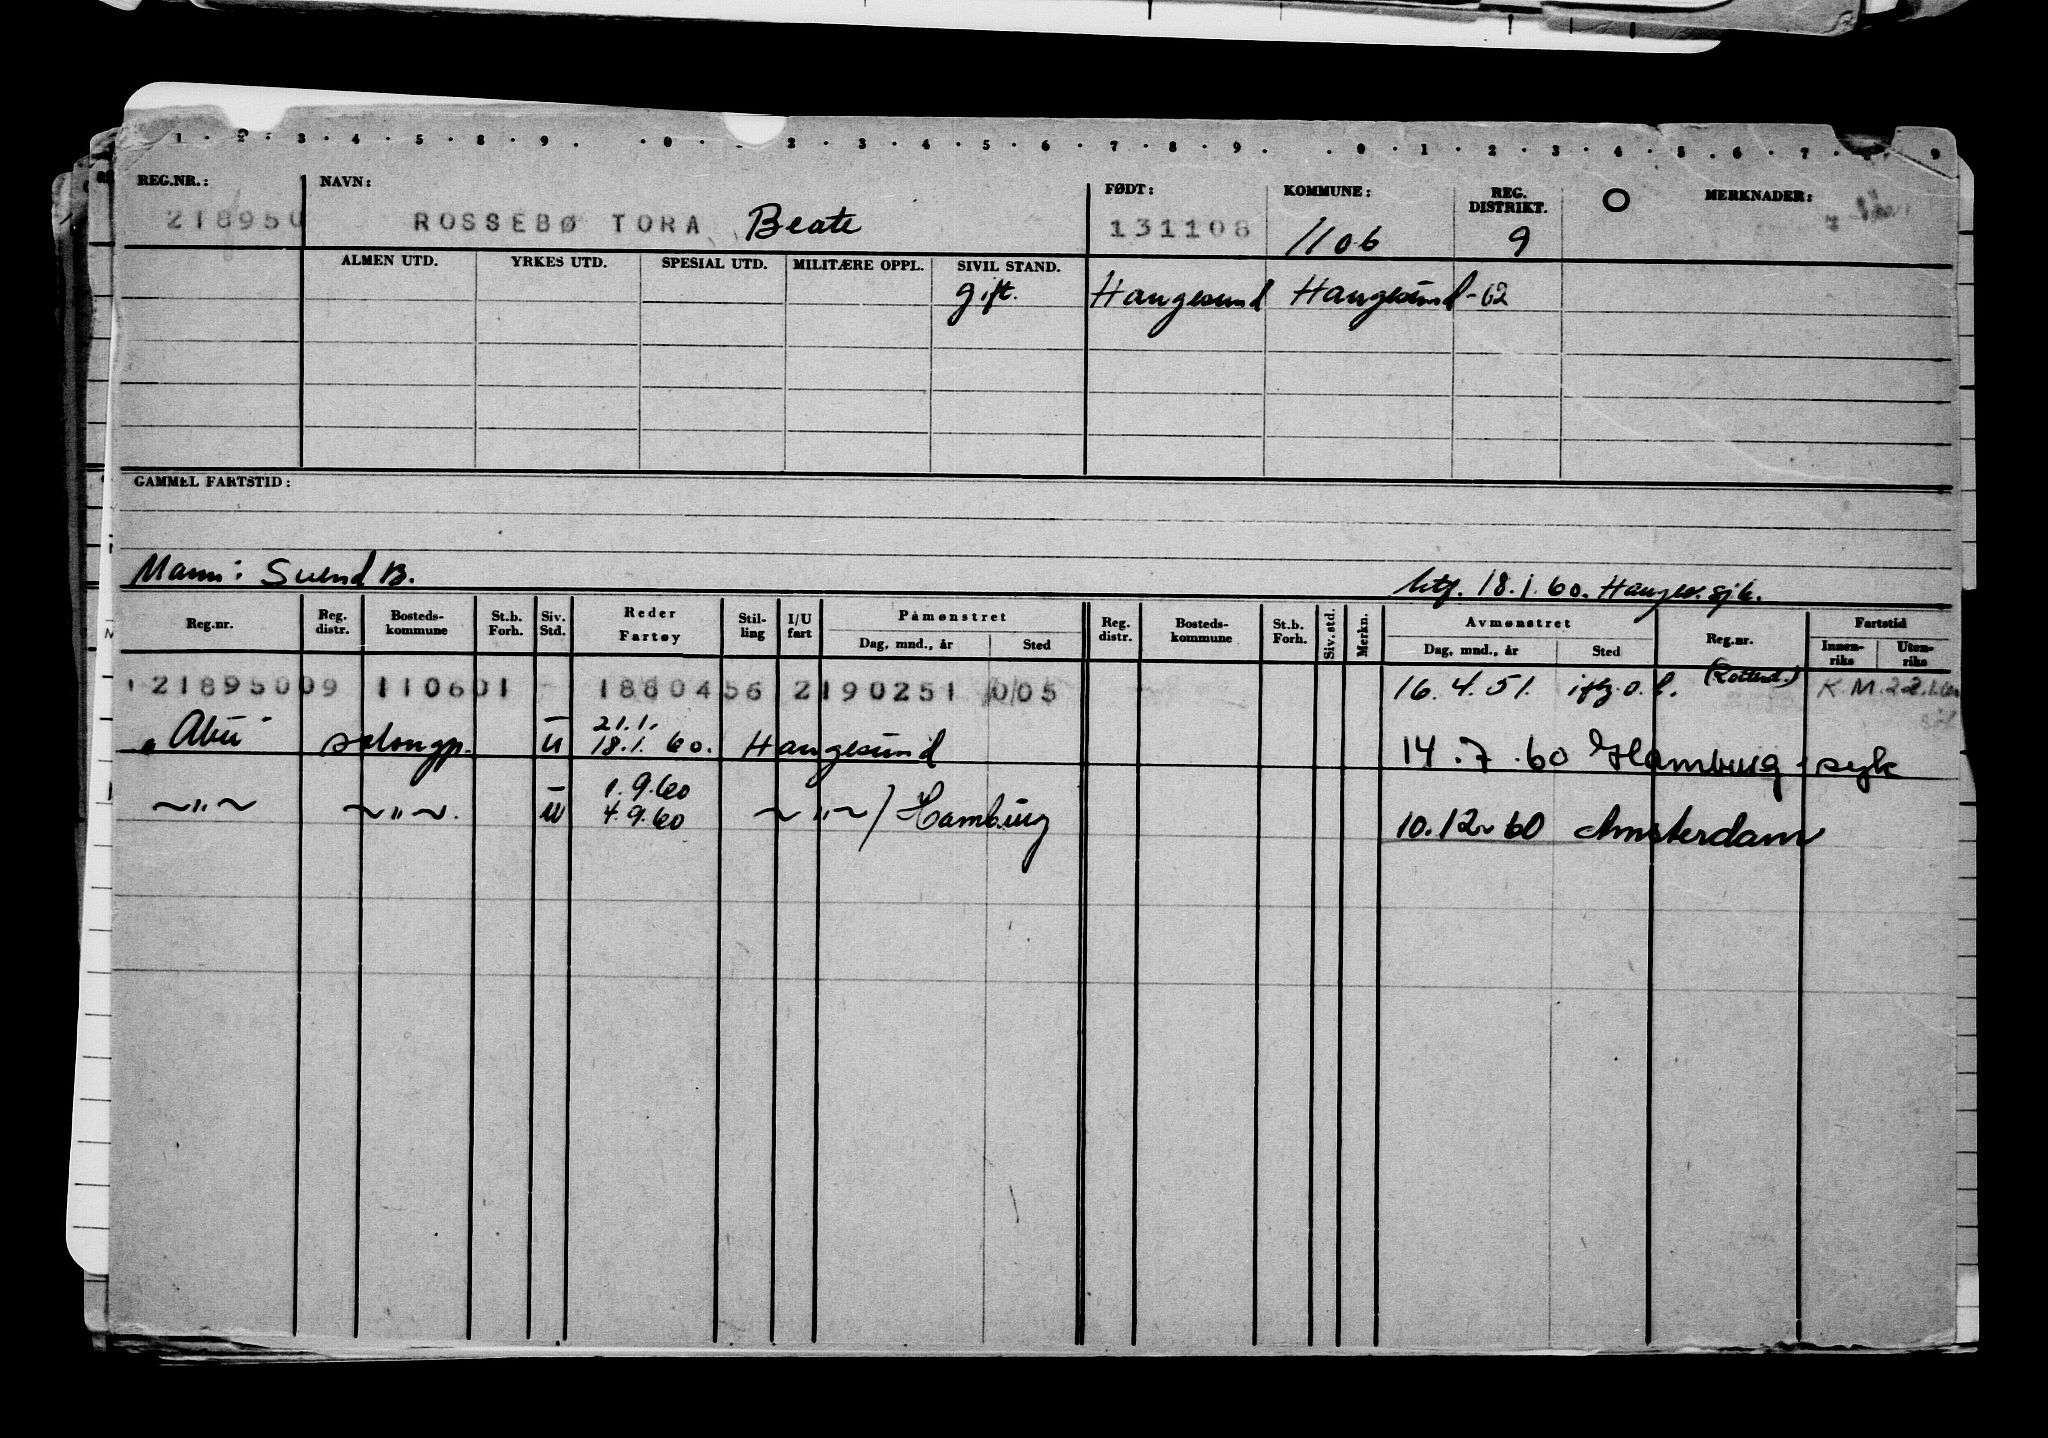 1 . 2 . 3 . 4 . 5 . 8 . 9 . . 0 . . 2 . 3 . 4 . 5 . 6 . 7 . 8 . 9 . . 0 . 1 . 2 . 3 . 4 . 5 . 6 . 7 . . 9
REG.NR.: NAVN: FØDT: KOMMUNE: REG. DISTRIKT. O MERKNADER:
218950 ROSSEBØ TORA Beate 131108 1106 9
ALMEN UTD. YRKES UTD. SPESIAL UTD. MILITÆRE OPPL. SIVIL STAND.
gift. Haugesund Haugesund -62
GAMMEL FARTSTID:
Mann: Svend B. 18.1.60. Hauges. sjk.
Reg.nr. Reg. distr. Bosteds-kommune St.b. Forh. Siv. Std. Reder Fartøy Stil-ling I/U fart Påmønstret Dag, mnd., år Sted Reg. distr. Bosteds-kommune St.b. Forh. Siv.std. Merkn. Avmønstret Dag, mnd., år Sted Reg.nr. Fartstid Innen-riks Uten-riks
121895009 110601 - 1880456 2190251 005 16.4.51. (Rotterd.) K.M.22.1.60
21.1.
"Abu" salongp. U 18.1.60. Haugesund 14.7.60 Hamburg - syk
1.9.60
~"~ ~"~. U 4.9.60 ~"~ / Hamburg 10.12.60 Amsterdam